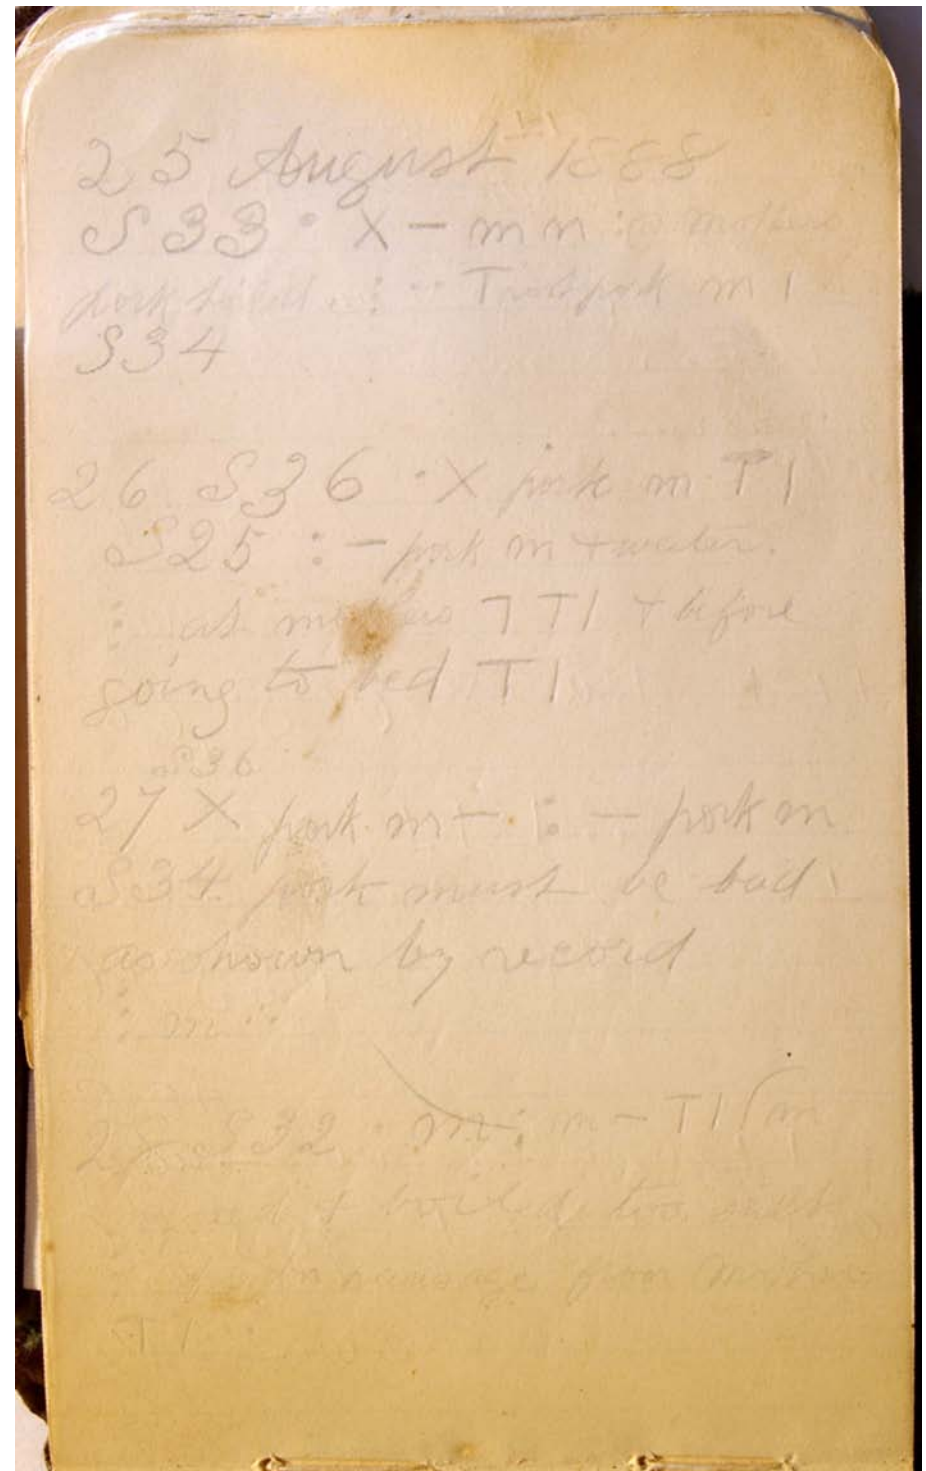 25 August 1888
S33 · X – m n : mothers
pork boiled : ·· T pork m 1
S34
26 S36 · X pork m T1
S25 : – pork m + water.
: at mothers 7 T1 + before
going to bed T1
S36
27 X pork m – · : – pork m
S34 pork must be bad
as shown by record
: m ··
28 S32 · m : m – T1 (m
+ boiled too much
sausage from mothers
T1